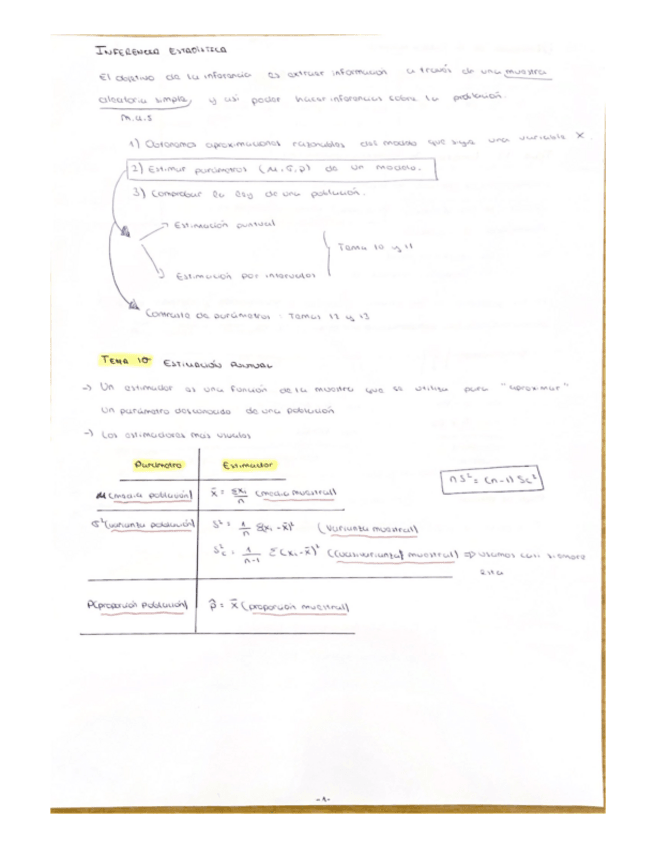 INFERENCIA ESTADÍSTICA
El objetivo de la inferencia es extraer información a través de una muestra
aleatoria simple, y así poder hacer inferencias sobre la población.
m.a.s
1) Obtenemos aproximaciones razonables del modelo que siga una variable X.
2) Estimar parámetros (μ, σ, p) de un modelo.
3) Comprobar la ley de una población.
→ Estimación puntual
Tema 10 y 11
Estimación por intervalos
Contraste de parámetros: Temas 12 y 13
TEMA 10 ESTIMACIÓN PUNTUAL
→ Un estimador es una función de la muestra que se utiliza para "aproximar"
un parámetro desconocido de una población
→ Los estimadores más usuales
Parámetro Estimador
nS² = (n-1) Sc²
μ (media población) x̄ = Σxi/n (media muestral)
σ² (varianza población) S² = 1/n Σ(xi - x̄)² (varianza muestral)
Sc² = 1/n-1 Σ(xi - x̄)² (cuasivarianza muestral) ⇒ usamos casi siempre
esta
P (proporción población) p̂ = x̄ (proporción muestral)